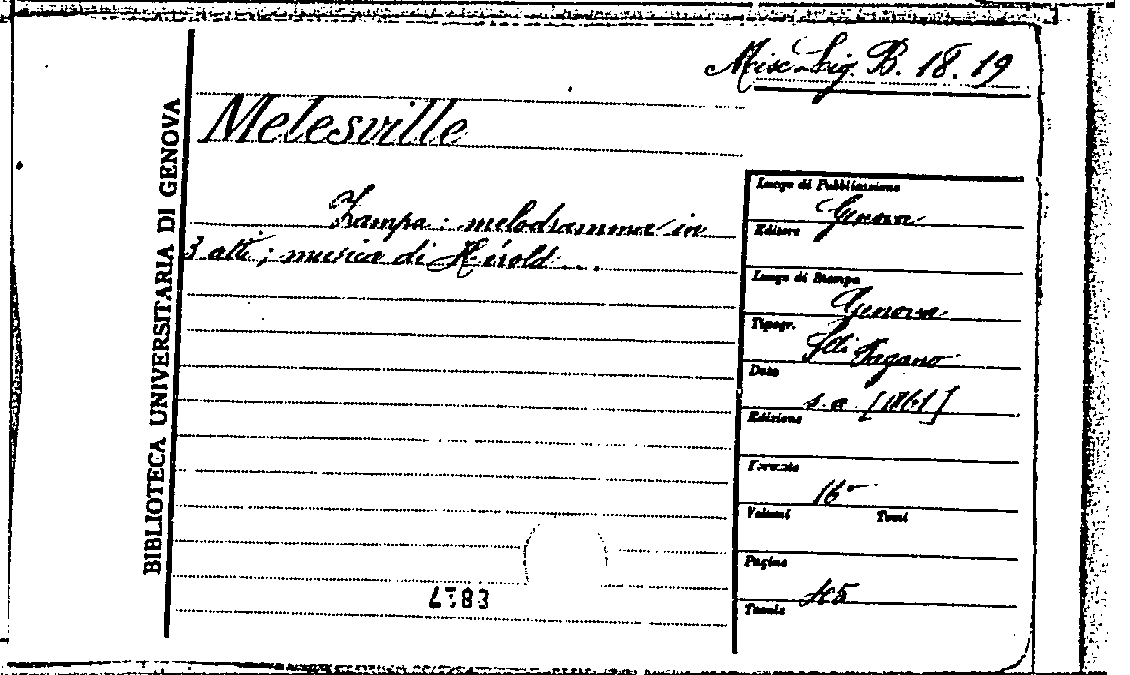 Misc. Lig. B. 18. 19
BIBLIOTECA UNIVERSITARIA DI GENOVA
Melesville
Zampa: melodramma in
3 atti; musica di Hérold...
Luogo di Pubblicazione
Genova
Editore
Luogo di Stampa
Genova
Tipogr.
Flli Pagano
Data
s. a. [1861]
Edizione
Formato
16°
Volumi Tomi
Pagine
45
Tavole